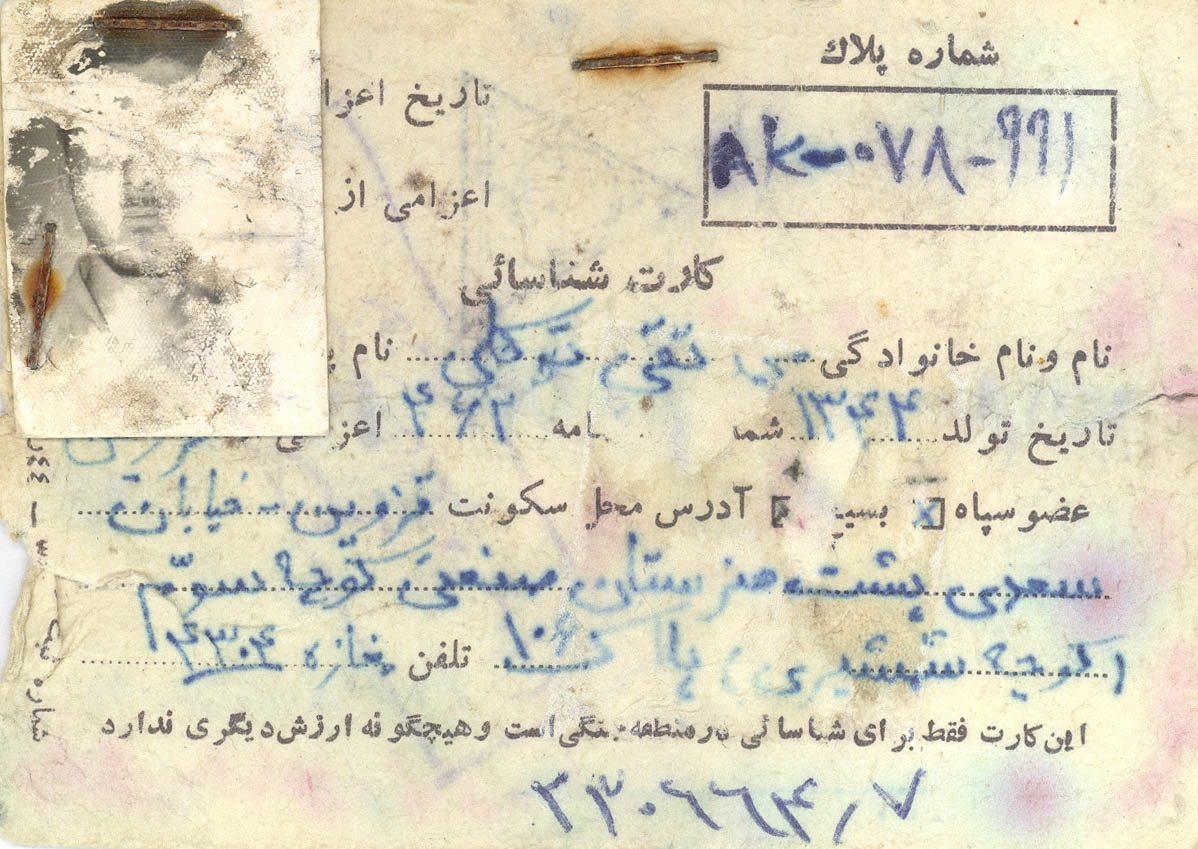 شماره پلاك
AK-078-991
تاریخ اعزا
اعزامی از
کارت شناسائی
نام و نام خانوادگی تقی توکلی نام
تاریخ تولد ۱۳۴۴ شما امه ۴۶۲ اعز
عضو سپاه [x] بسیج آدرس محل سکونت قزوین - خیابان
سعدی پشت هنرستان صنعتی کوچه سوم
(کوچه شمشیری) پلاک ۱۰ تلفن مغازه ۴۳۰۴
این کارت فقط برای شناسائی در منطقه جنگی است و هیچگونه ارزش دیگری ندارد
شماره